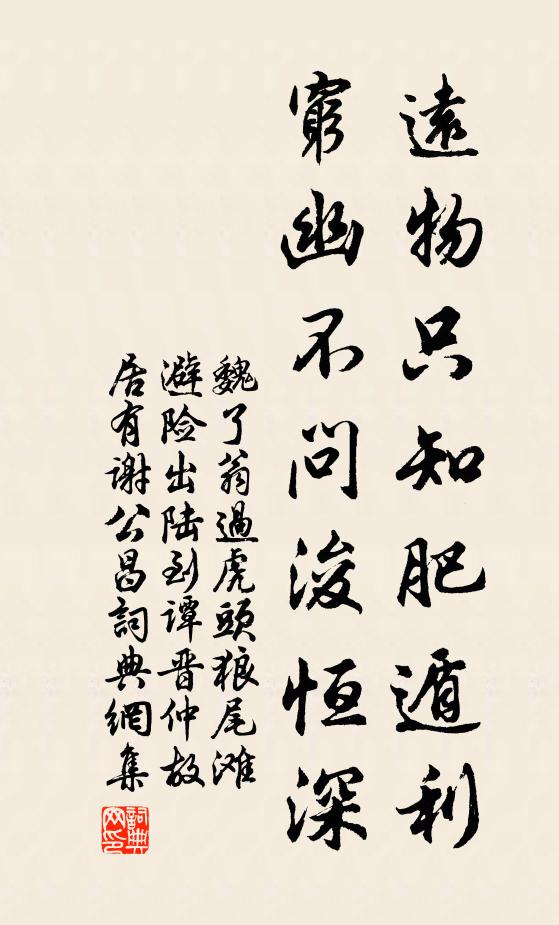 遠物只知肥遁利
窮幽不問浚恒深
魏了翁過虎頭狼尾滩
避险出陆到谭晋仲故
居有谢公昌詞典網集
詞典
网印